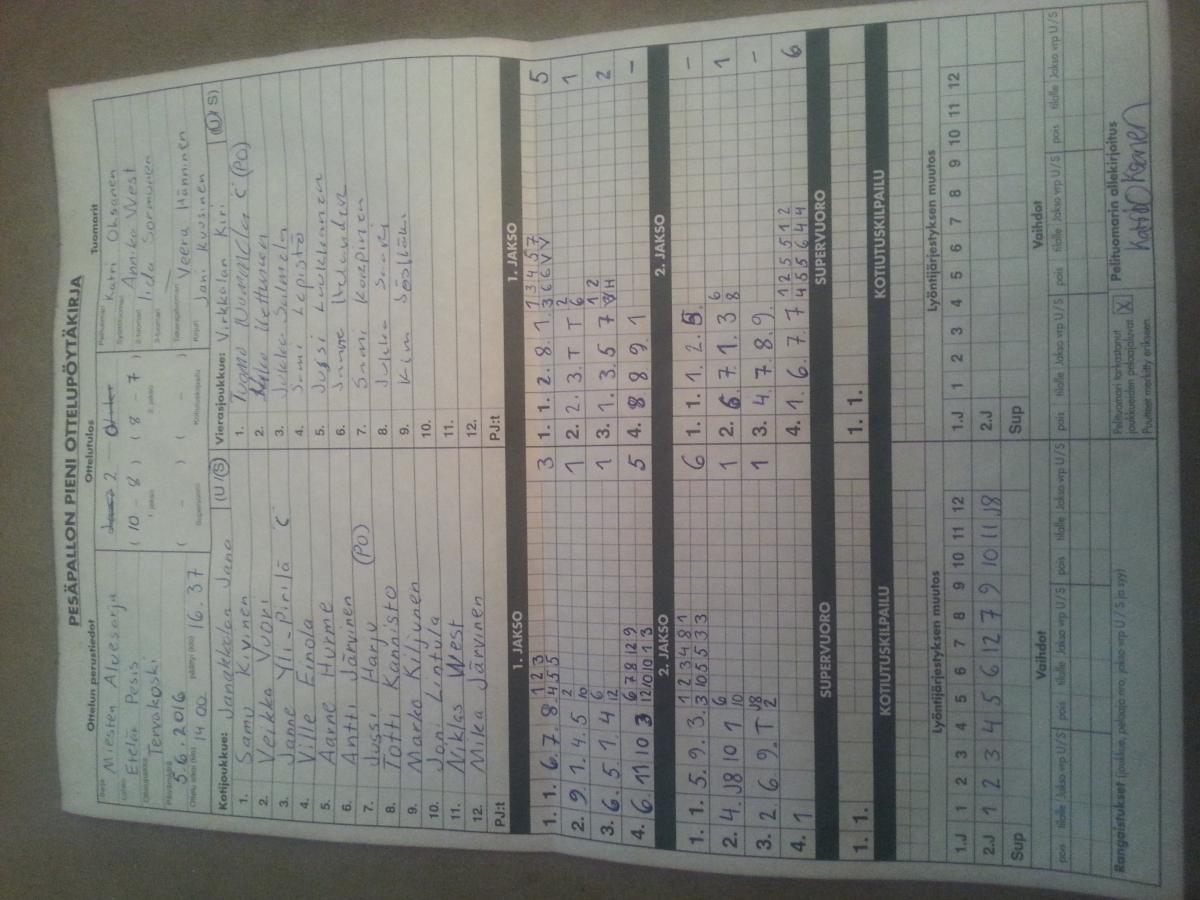 PESÄPALLON PIENI OTTELUPÖYTÄKIRJA
Ottelun perustiedot
Ottelutulos
Tuomarit
Sarja Miesten Aluesarja
2 - 0
Pelituomari Katri Oksanen
Etelän Pesis
(10 - 8) (8 - 7)
Syöttötuomari Annika West
Tervakoski
1. jakso 2. jakso
2-tuomari Iida Sormunen
Päivämäärä 5.6.2016
( - ) ( - )
3-tuomari
Ottelu alkoi (klo) 14 00 päättyi (klo) 16.37
Supervuoro Kotiutuskilpailu
Takarajatuomari Veera Hänninen
Kirjuri Jani Kuusinen
Kotijoukkue: Janakkalan Jana (U/S)
1. Samu Kivinen
2. Veikka Vuori
3. Janne Yli-Pirilä C
4. Ville Einola
5. Aarne Hurme
6. Antti Järvinen
7. Jussi Harju (PO)
8. Totti Kannisto
9. Marko Kiljunen
10. Joni Lintula
11. Niklas West
12. Mika Järvinen
PJ:t
Vierasjoukkue: Virkkalan Kiri (U/S)
1. Tuomo Nummelin C (PO)
2. Kettunen
3. Jukka Salmela
4. Sami Lepistö
5. Jussi
6. Janne
7. Sami Karpinen
8. Jukka
9. Kim
10.
11.
12.
PJ:t
1. JAKSO
1. 1. 6. 7. 8 1 2 3 3
4 5 5
2. 9. 1. 4. 5 2 1
10
3. 6. 5. 1. 4 6 1
12
4. 6. 11 10 3 6 7 8 12 9 5
12 10 10 1 3
2. JAKSO
1. 1. 5. 9. 3. 1 2 3 4 8 1 6
3 10 5 5 3 3
2. 4. J8 10 1 6 1
10
3. 2 6 9. T J8 1
2
4. 1
SUPERVUORO
1. 1.
KOTIUTUSKILPAILU
1. JAKSO
1. 1. 2. 8. 1. 1 3 4 5 7 5
3 6 6 V V
2. 2. 3. T T 2 1
6
3. 1. 3. 5 7 1 2 2
H
4. 8 8 9. 1 -
2. JAKSO
1. 1. 1. 2. 5. -
2. 6. 7 1. 3 6 1
8
3. 4. 7. 8. 9. -
4. 1. 6. 7. 7 1 2 5 5 1 2 6
4 5 5 6 4 4
SUPERVUORO
1. 1.
KOTIUTUSKILPAILU
Lyöntijärjestyksen muutos
1.J 1 2 3 4 5 6 7 8 9 10 11 12
2.J 1 2 3 4 5 6 12 7 9 10 11 J8
Sup
Vaihdot
pois tilalle Jakso vrp U/S pois tilalle Jakso vrp U/S pois tilalle Jakso vrp U/S
Lyöntijärjestyksen muutos
1.J 1 2 3 4 5 6 7 8 9 10 11 12
2.J
Sup
Vaihdot
pois tilalle Jakso vrp U/S pois tilalle Jakso vrp U/S pois tilalle Jakso vrp U/S
Rangaistukset (joukkue, pelaaja nro, jakso vrp U/S ja syy)
Pelituomari tarkastanut
joukkueiden pelaajaluvat. X
Puutteet merkitty erikseen.
Pelituomarin allekirjoitus
Katri Oksanen